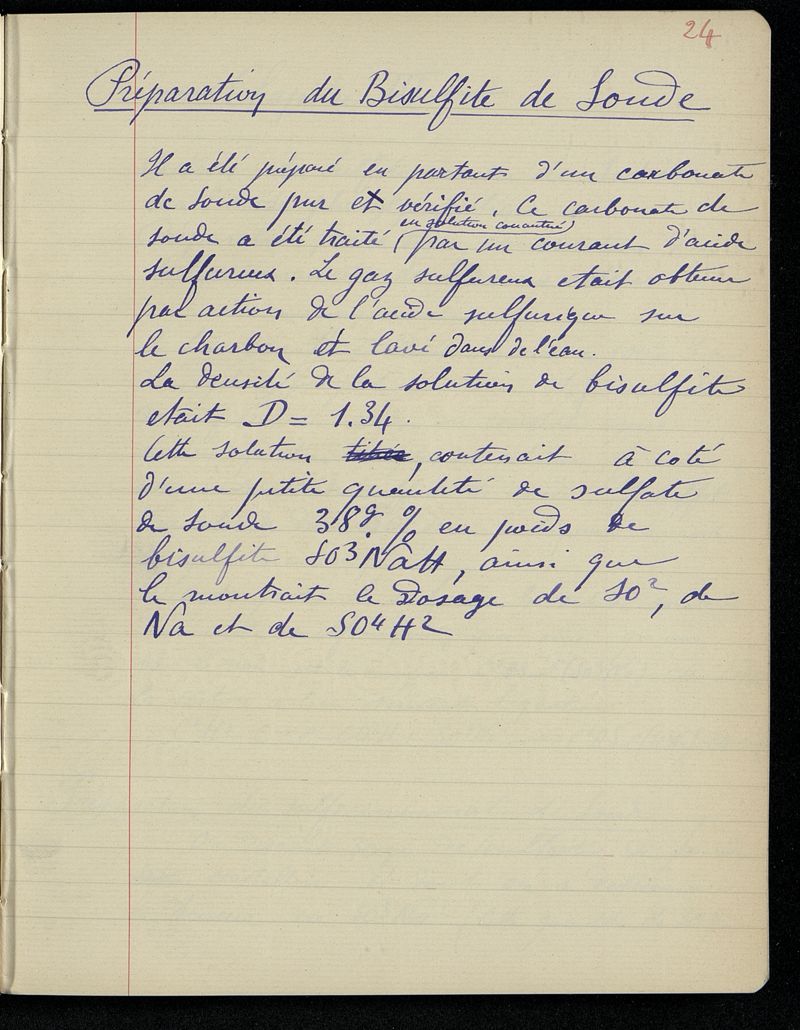 24
Préparation du Bisulfite de Soude
Il a été préparé en partant d'un carbonate
de soude pur et vérifié. Ce carbonate de
en solution concentrée
soude a été traité (par un courant d'acide
sulfureux. Le gaz sulfureux etait obtenu
par action de l'acide sulfurique sur
le charbon et lavé dans de l'eau.
La densité de la solution de bisulfite
etait D = 1.34.
Cette solution titrée, contenait à coté
d'une petite quantité de sulfate
de soude 38g % en poids de
bisulfite SO3NaH, ainsi que
le montrait le dosage de SO2, de
Na et de SO4H2